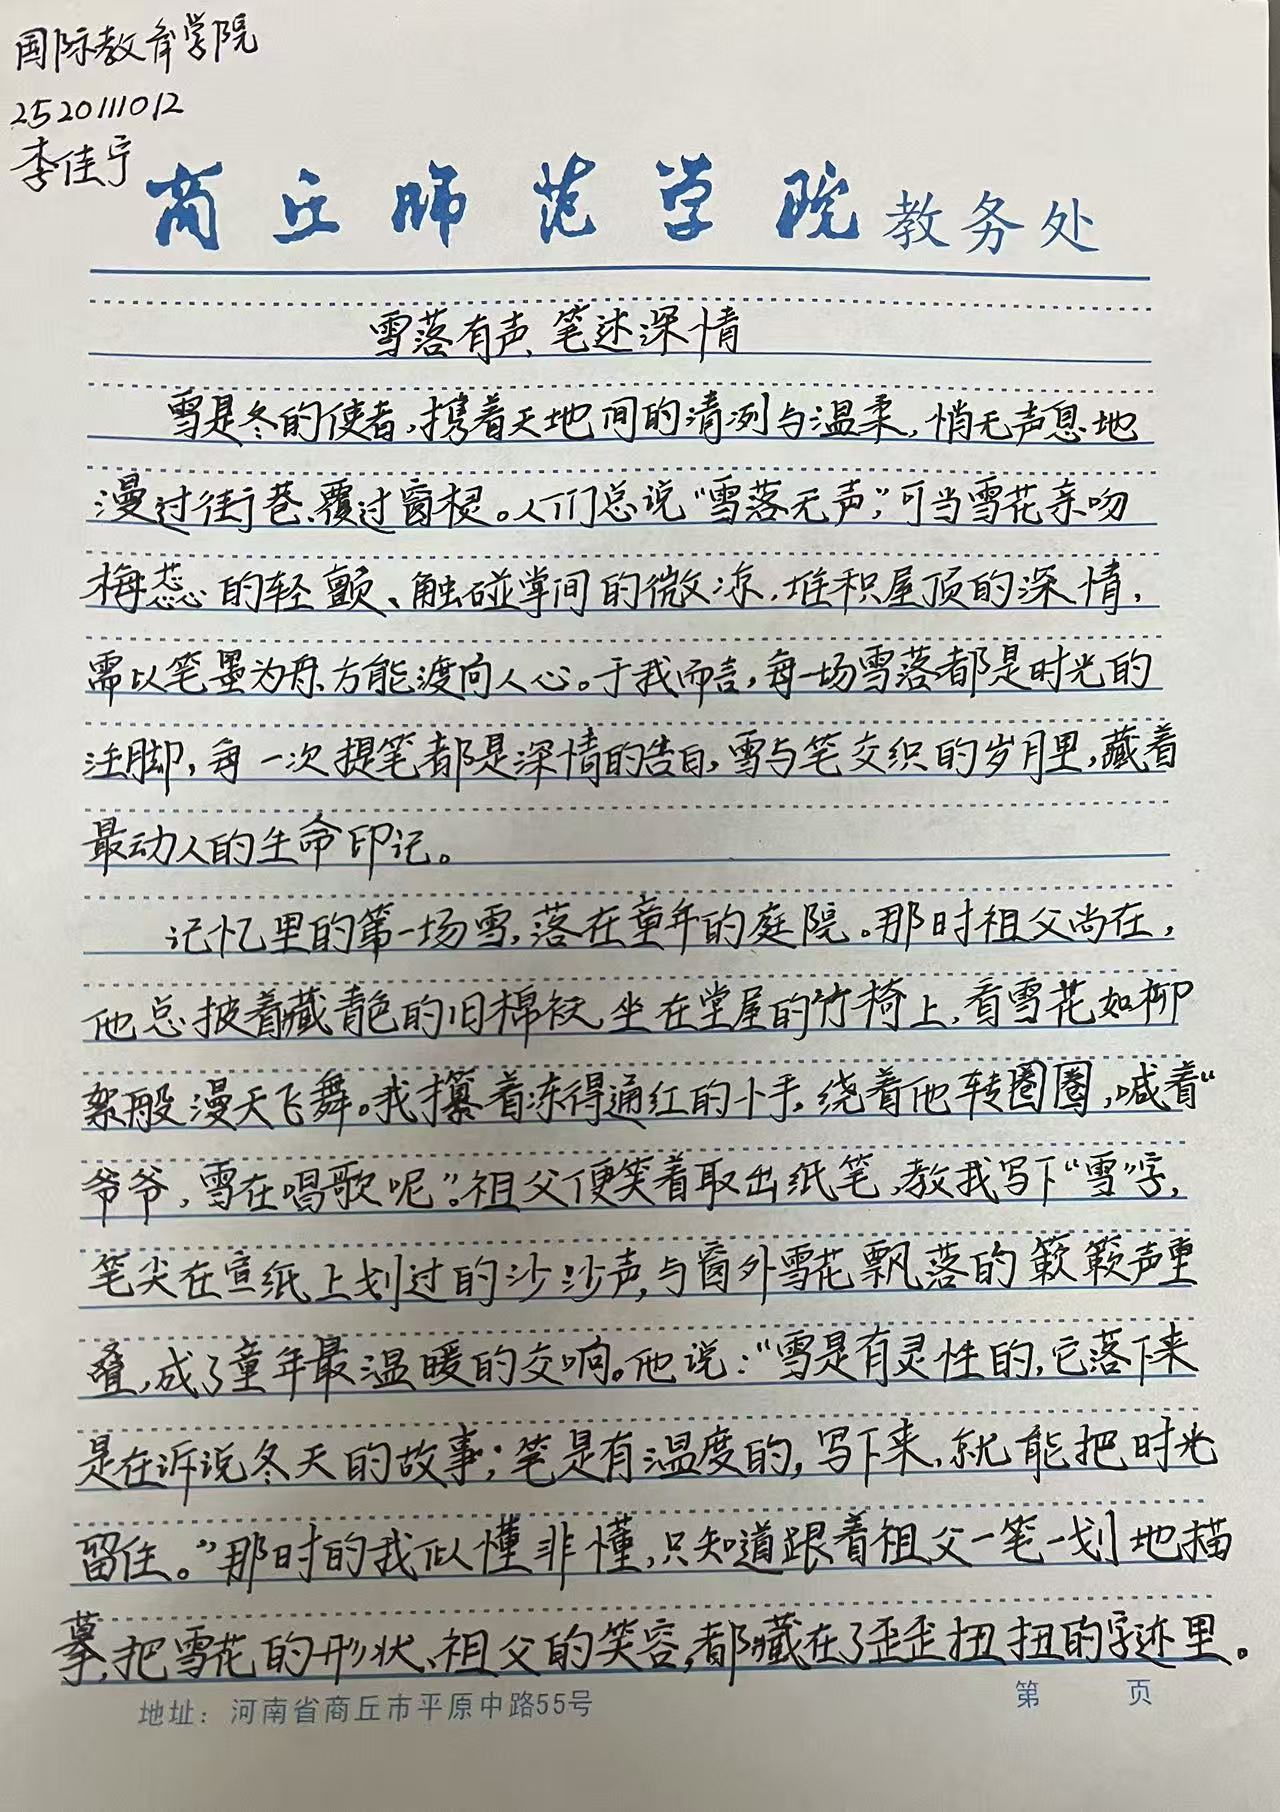 国际教育学院
2520111012
李佳宁
商丘师范学院教务处
雪落有声、笔述深情
雪是冬的使者,携着天地间的清冽与温柔,悄无声息地
漫过街巷、覆过窗棂。人们总说“雪落无声”,可当雪花亲吻
梅蕊的轻颤、触碰掌间的微凉、堆积屋顶的深情,
需以笔墨为舟、方能渡向人心。于我而言,每一场雪落都是时光的
注脚,每一次提笔都是深情的告白,雪与笔交织的岁月里,藏着
最动人的生命印记。
记忆里的第一场雪,落在童年的庭院。那时祖父尚在,
他总披着藏青色的旧棉袄,坐在堂屋的竹椅上,看雪花如柳
絮般漫天飞舞。我攥着冻得通红的小手,绕着他转圈圈,喊着“
爷爷,雪在唱歌呢”。祖父便笑着取出纸笔,教我写下“雪”字,
笔尖在宣纸上划过的沙沙声,与窗外雪花飘落的簌簌声重
叠,成了童年最温暖的交响。他说:“雪是有灵性的,它落下来
是在诉说冬天的故事;笔是有温度的,写下来,就能把时光
留住。”那时的我似懂非懂,只知道跟着祖父一笔一划地描
摹,把雪花的形状、祖父的笑容,都藏在了歪歪扭扭的字迹里。
地址：河南省商丘市平原中路55号 第 页